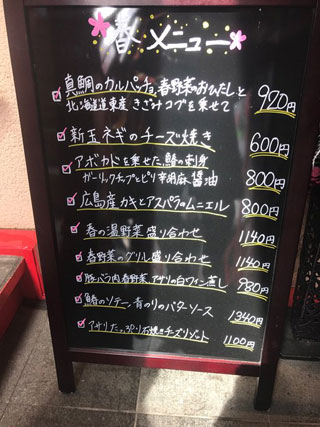 春メニュー
真鯛のカルパッチョ、春野菜のおひたしと 920円
北海道道東産 きざみコブを乗せて
新玉ネギのチーズ焼き 600円
アボカドを乗せた、鰆の刺身 800円
ガーリックチップとピリ辛胡麻醤油
広島産カキとアスパラのムニエル 800円
春の温野菜盛り合わせ 1140円
春野菜のグリル盛り合わせ 1140円
豚バラ肉春野菜、アサリの白ワイン蒸し 980円
鰆のソテー 青のりのバターソース 1340円
アサリたっぷり石焼きチーズリゾット 1100円